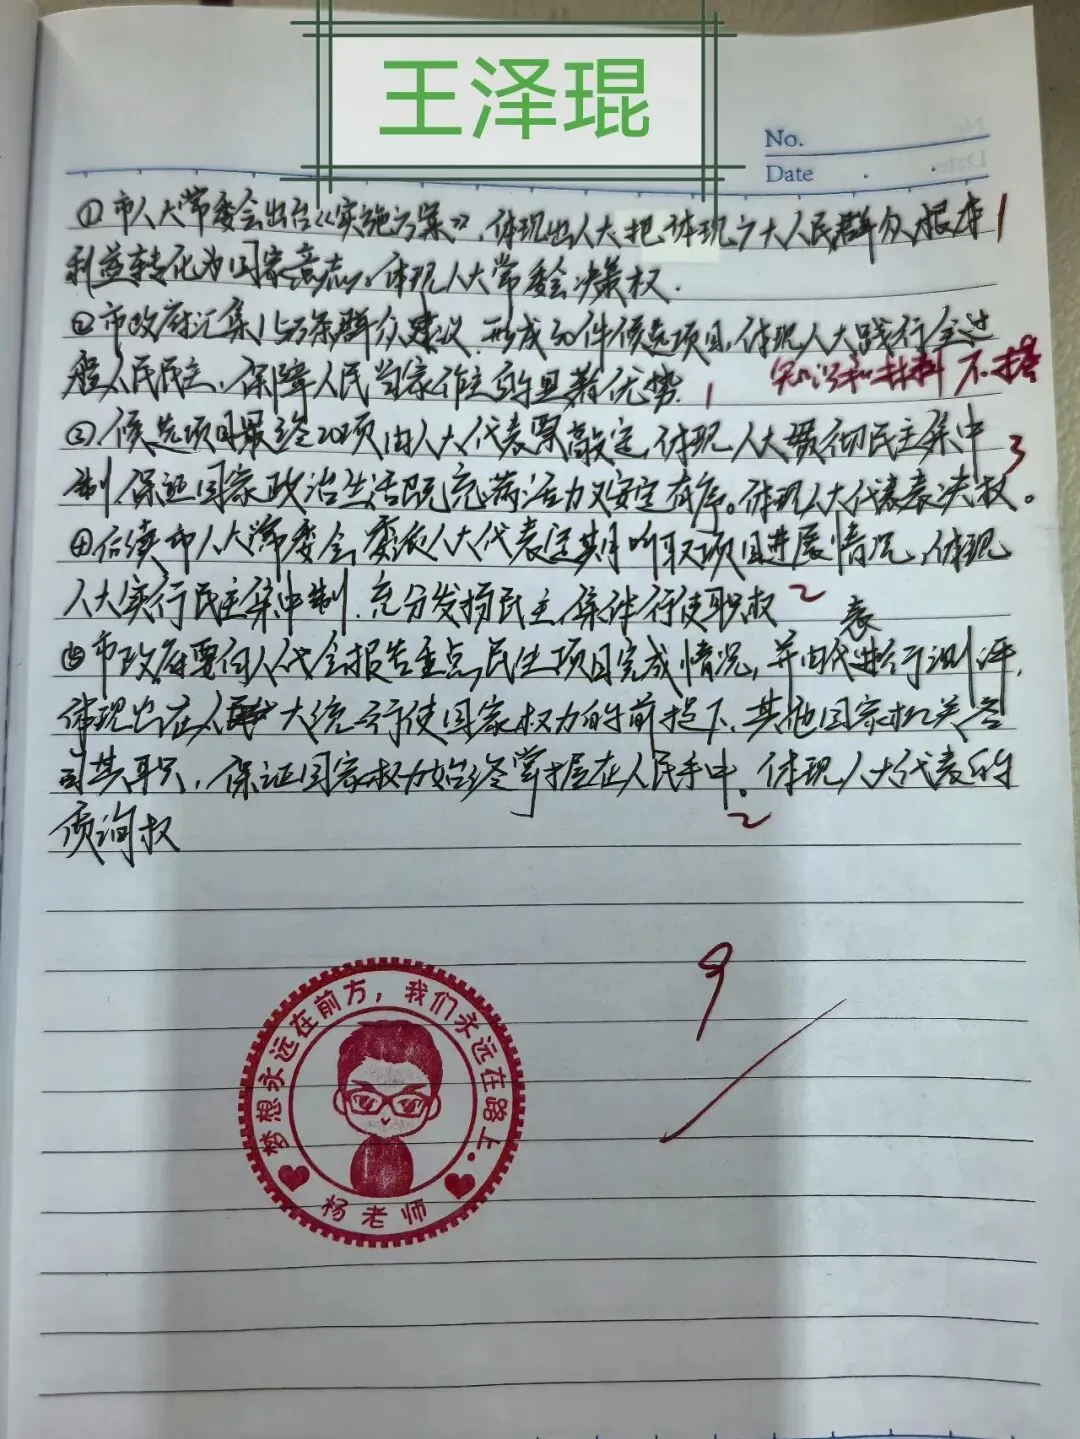 王泽琨
No.
Date
①市人大常委会出台《实施方案》,体现出人大把体现广大人民群众根本 1
利益转化为国家意志。体现人大常委会决策权.
②市政府汇集 群众建议,形成30件候选项目,体现人大践行全过
程人民民主,保障人民当家作主的显著优势. 1 知识和材料不搭
③候选项目最终20项由人大代表票敲定,体现人大贯彻民主集中
制,保证国家政治生活既充满活力又安定有序。体现人大代表表决权。 3
④后续市人大常委会委派人大代表逐月听取项目进展情况,体现
人大实行民主集中制,充分发扬民主,集体行使职权 2
⑤市政府要向人代会报告重点民生项目完成情况,并由代表进行测评,
体现出在人大统一行使国家权力的前提下,其他国家机关各
司其职,保证国家权力始终掌握在人民手中。体现人大代表的 2
质询权
9
梦想永远在前方,我们永远在路上.
杨老师